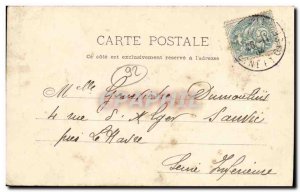 CARTE POSTALE
Ce côté est exclusivement réservé à l'adresse
92
Mlle Geneviève Dumoutier
4 rue d'Alger Sanvic
près Le Havre
Seine Inférieure